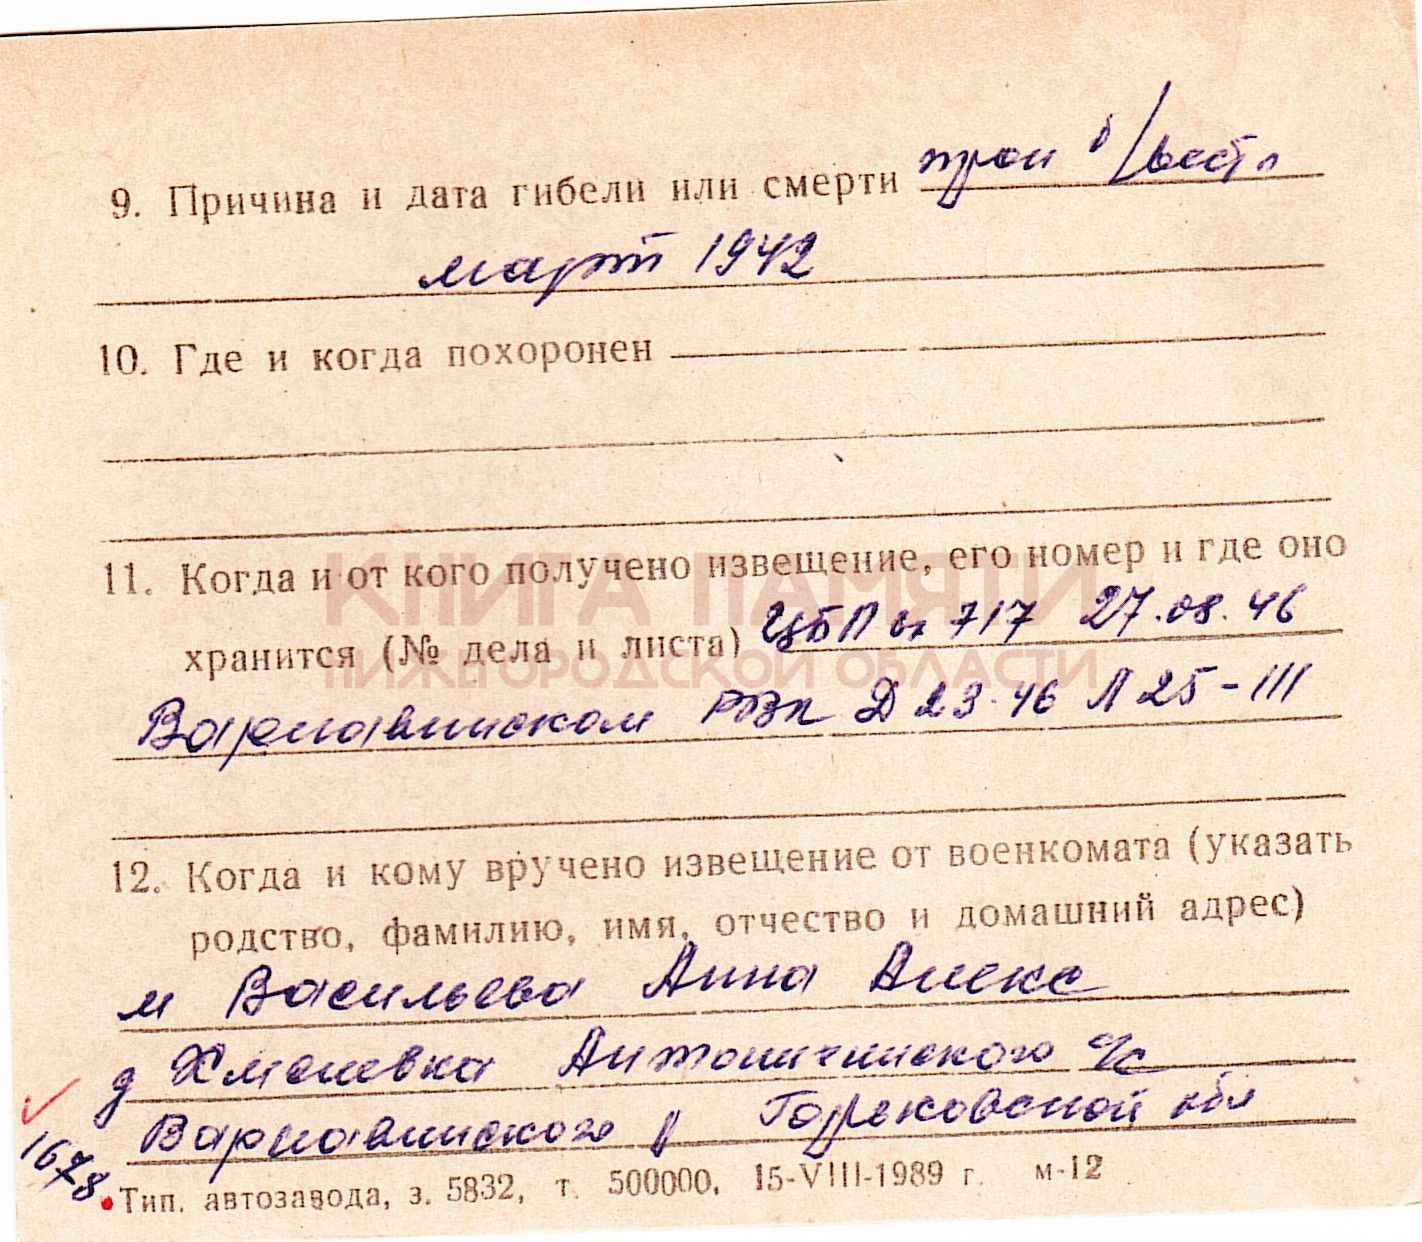 9. Причина и дата гибели или смерти проп б/вести
март 1942
10. Где и когда похоронен
11. Когда и от кого получено извещение, его номер и где оно
КНИГА ПАМЯТИ
хранится (№ дела и листа) ЦБП вх 717 27.08.46
НИЖЕГОРОДСКОЙ ОБЛАСТИ
Варнавинском РВК Д 23-46 Л 25-III
12. Когда и кому вручено извещение от военкомата (указать
родство, фамилию, имя, отчество и домашний адрес)
м Васильева Анна Алекс
д Хмелевка Антонихинского с/с
Варнавинского р Горьковской обл
1678
Тип. автозавода, з. 5832, т. 500000, 15-VIII-1989 г. м-12